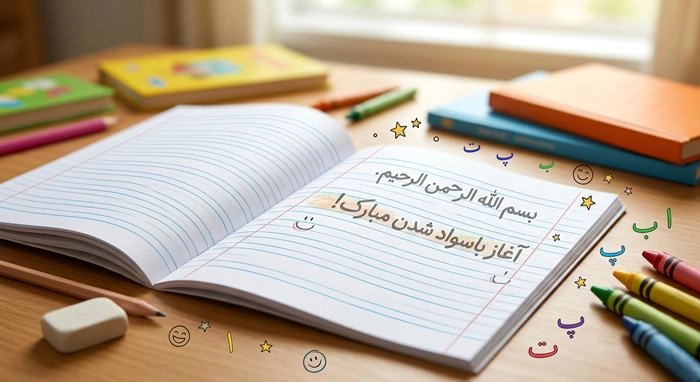 بسم الله الرحمن الرحیم.
آغاز باسواد شدن مبارک!
ت پ ب
ا ب پ
پ ت
ا